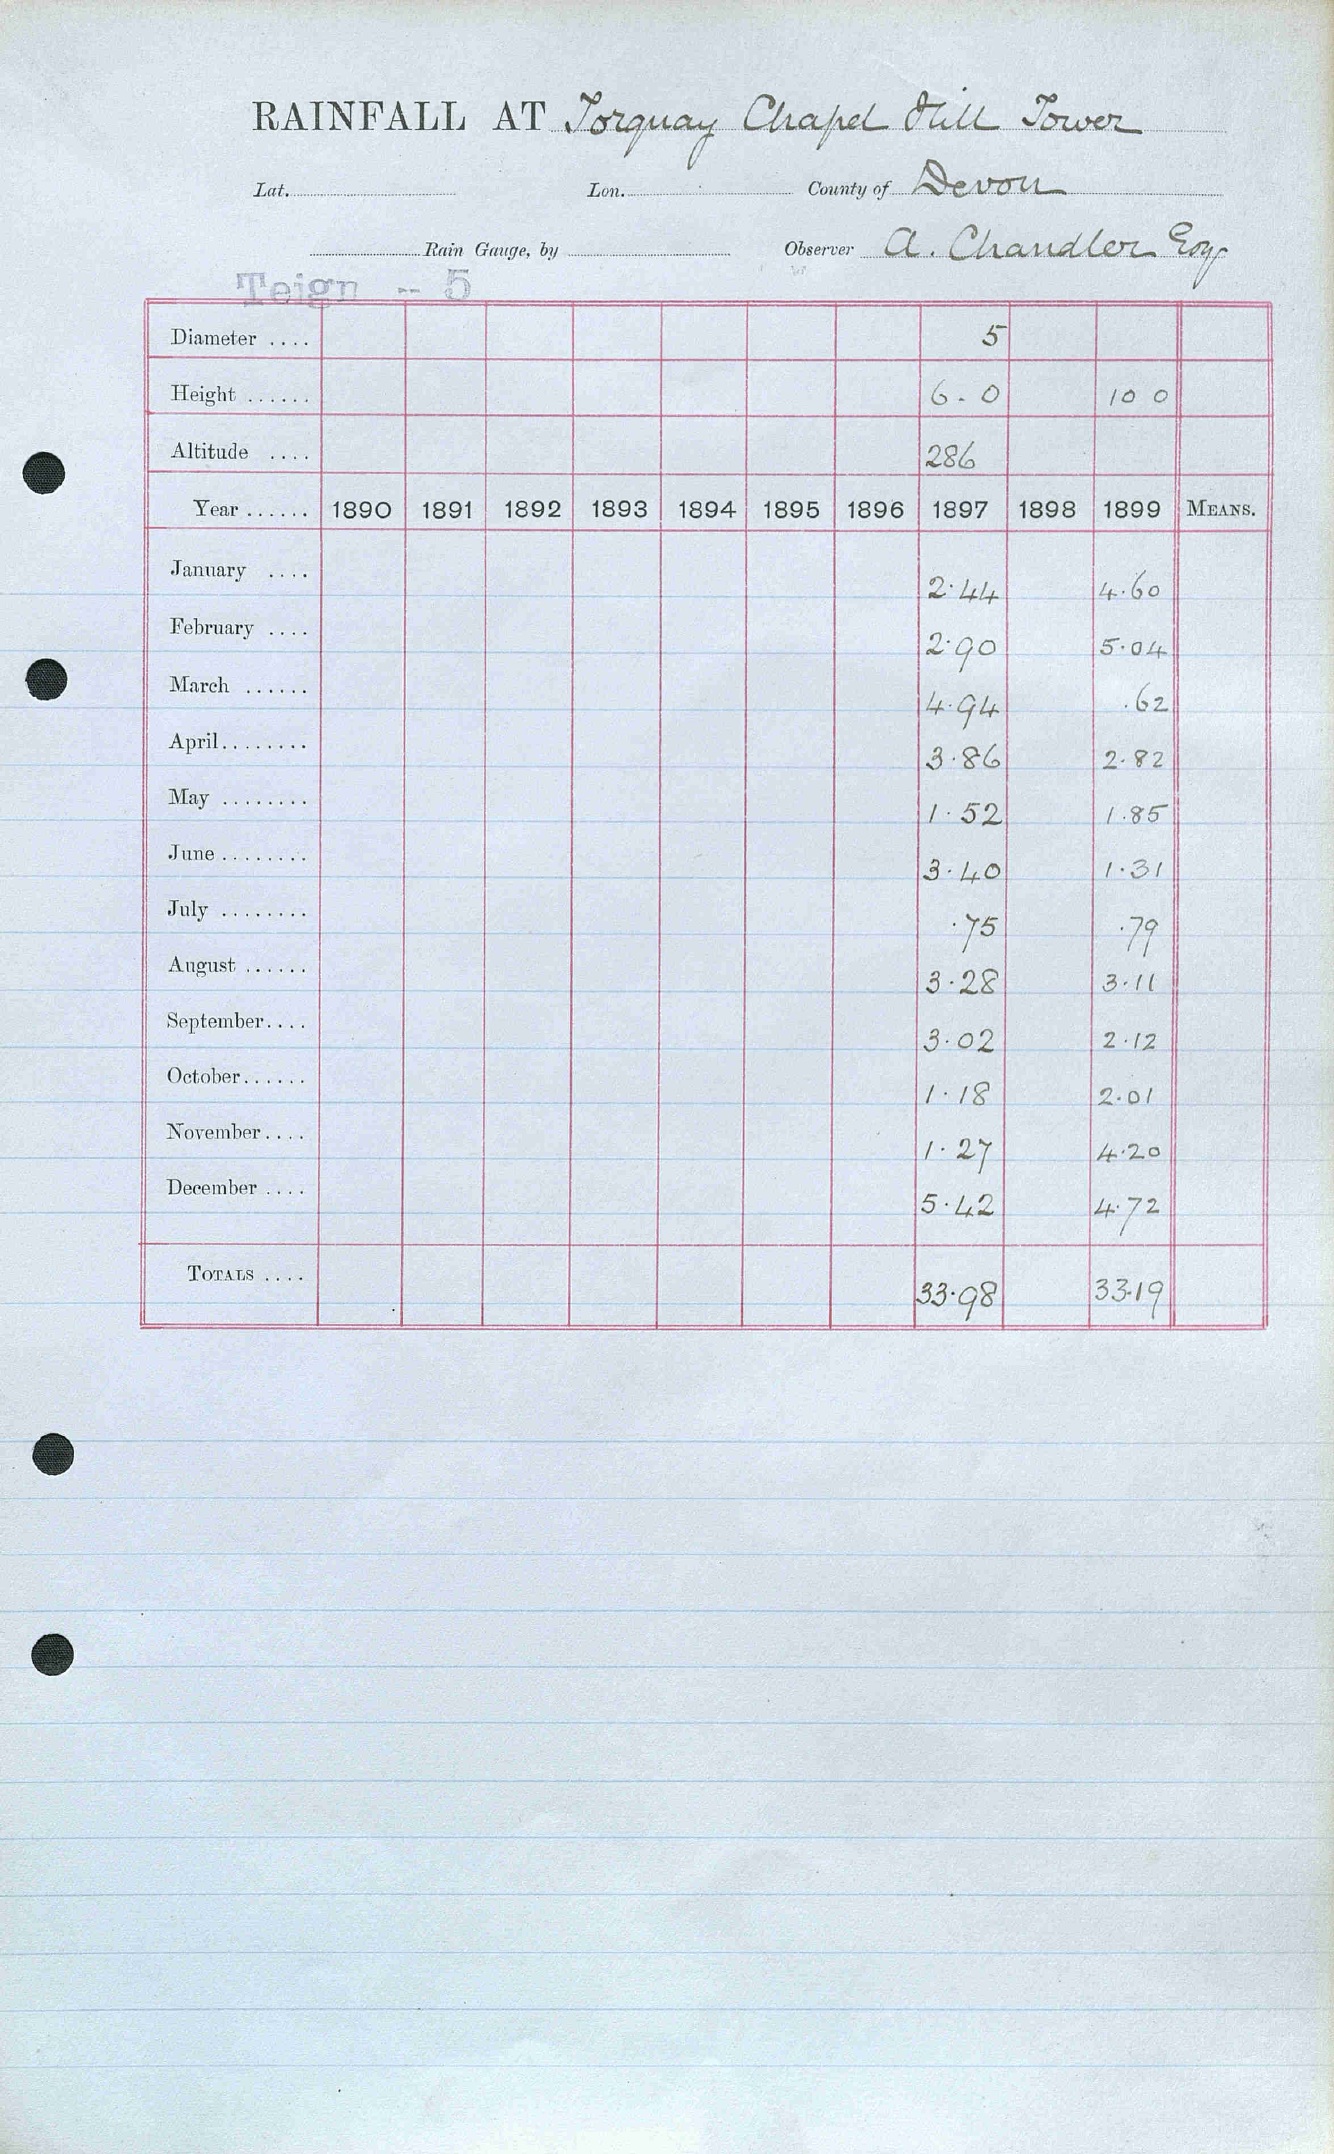 RAINFALL AT Torquay Chapel Hill Tower
Lat. Lon. County of Devon
Rain Gauge, by Observer A. Chandler Esq
Teign -- 5
Diameter .... 5
Height ...... 6 - 0 10 0
Altitude .... 286
Year ...... 1890 1891 1892 1893 1894 1895 1896 1897 1898 1899 MEANS.
January .... 2.44 4.60
February .... 2.90 5.04
March ...... 4.94 .62
April ........ 3.86 2.82
May ........ 1.52 1.85
June ........ 3.40 1.31
July ........ .75 .79
August ...... 3.28 3.11
September .... 3.02 2.12
October ...... 1.18 2.01
November .... 1.27 4.20
December .... 5.42 4.72
TOTALS .... 33.98 33.19